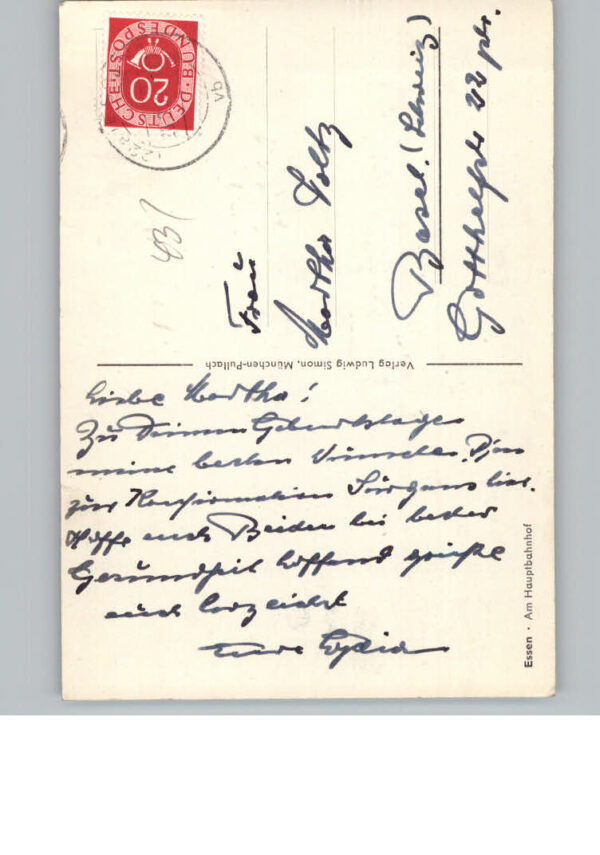 Liebe Martha!
Zu Deinem Geburtstage
meine besten Wünsche. Bin
zur Konfirmation Jürgens hier.
Hoffe euch Beiden bei bester
Gesundheit hoffend grüßt
euch herzlichst
Eure Lydia
Frau
Martha Voltz
Basel. (Schweiz)
Gotthelfstr 22 ptr.
DEUTSCHE BUNDESPOST
20
Verlag Ludwig Simon, München-Pullach
Essen · Am Hauptbahnhof